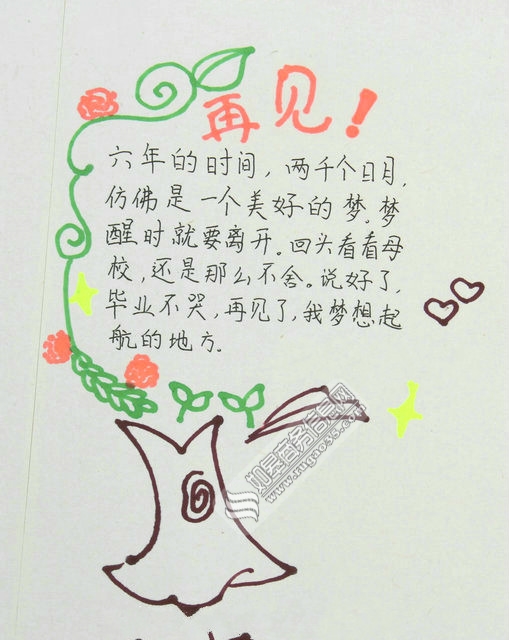 再见！
六年的时间，两千个日月，
仿佛是一个美好的梦。梦
醒时就要离开。回头看看母
校，还是那么不舍。说好了，
毕业不哭，再见了，我梦想起
航的地方。
如皋商务信息网
www.rugao35.com